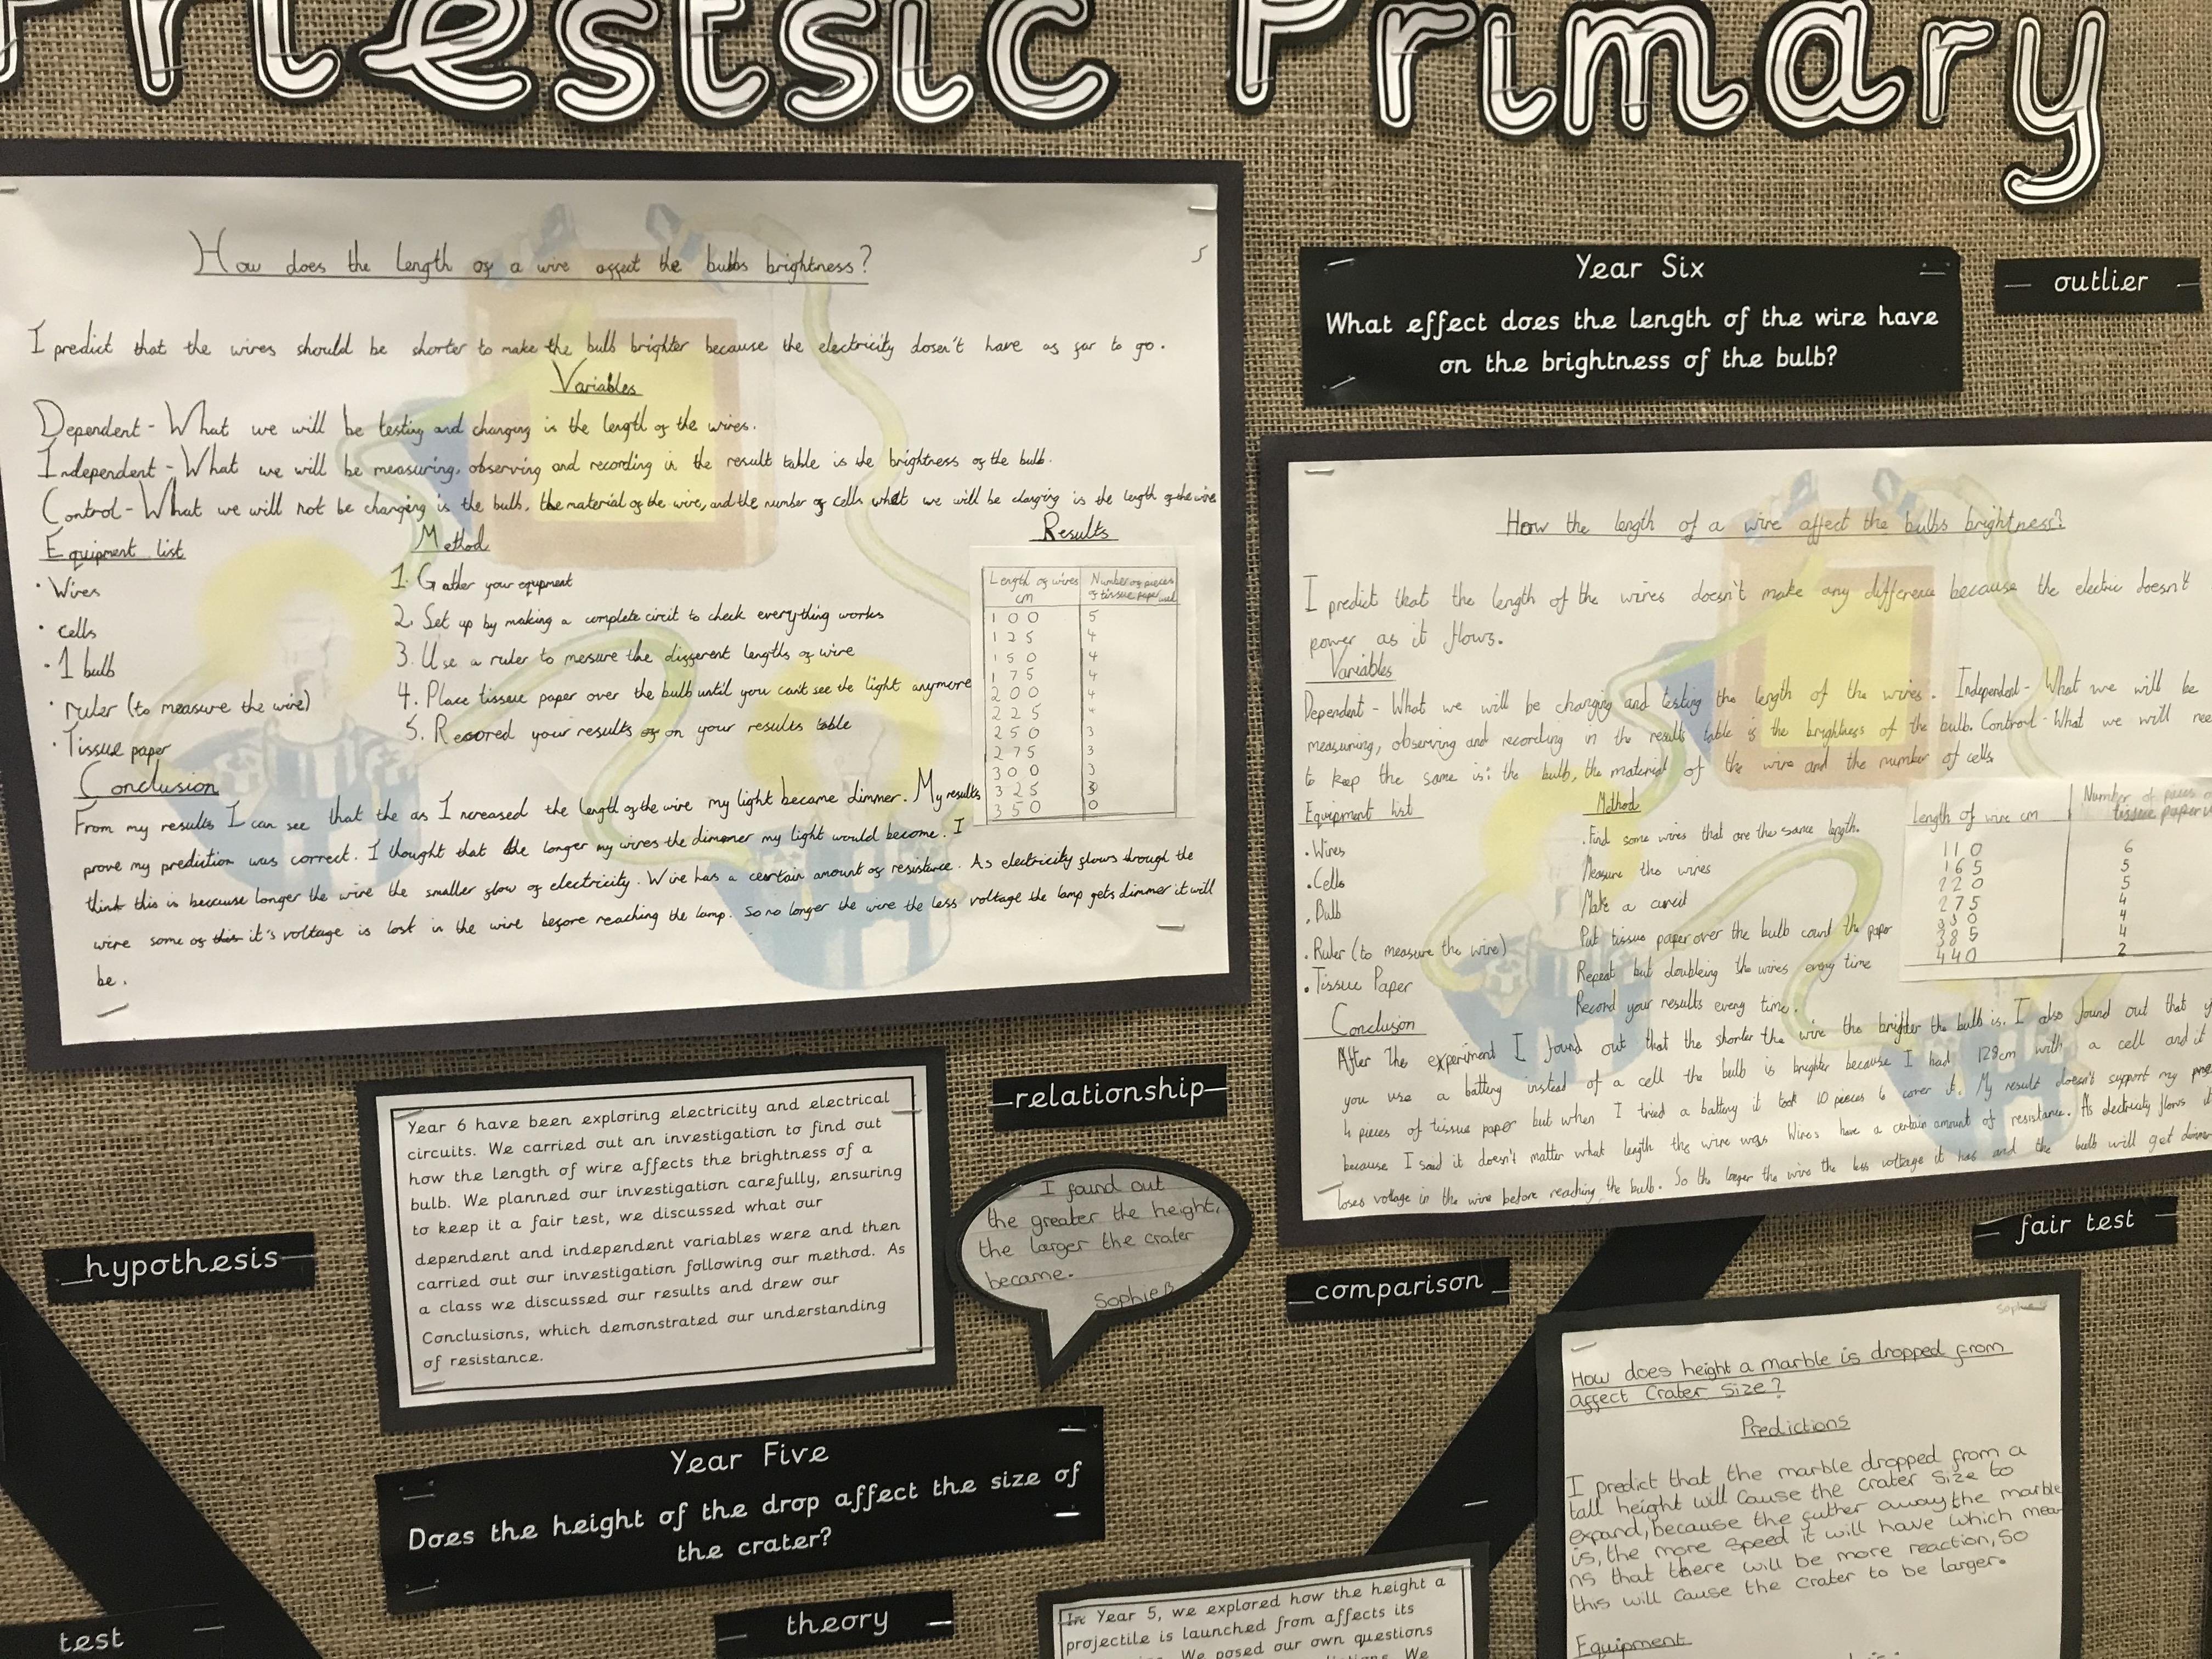 Priestsic Primary
How does the length of a wire affect the bulbs brightness?
5
I predict that the wires should be shorter to make the bulb brighter because the electricity dosen't have as far to go.
Variables
Dependent - What we will be testing and changing is the length of the wires.
Independent - What we will be measuring, observing and recording in the result table is the brightness of the bulb.
Control - What we will not be changing is the bulb, the material of the wire, and the number of cells what we will be changing is the length of the wire
Equipment list
· Wires
· cells
· 1 bulb
· ruler (to measure the wire)
· Tissue paper
Method
1. Gather your equpment
2. Set up by making a complete circit to check everything works
3. Use a ruler to mesure the different lengths of wire
4. Place tissue paper over the bulb until you can't see the light anymore
5. Recored your results of on your results table
Results
Length of wires cm Number of pieces of tissue paper used
100 5
125 4
150 4
175 4
200 4
225 4
250 3
275 3
300 3
325 3
350 0
Conclusion
From my results I can see that the as I ncreased the length of the wire my light became dimmer. My results
prove my prediction was correct. I thought that the longer my wires the dimmer my light would become. I
think this is because longer the wire the smaller flow of electricity. Wire has a certain amount of resistance. As electricity flows through the
wire some of this it's voltage is lost in the wire before reaching the lamp. So no longer the wire the less voltage the lamp gets dimmer it will
be.
Year Six
What effect does the length of the wire have
on the brightness of the bulb?
outlier
How the length of a wire affect the bulbs brightness?
I predict that the length of the wires doesn't make any difference because the electric doesn't
power as it flows.
Variables
Dependent - What we will be changing and testing the length of the wires. Independent - What we will be
measuring, observing and recording in the results table is the brightness of the bulb. Control - What we will
to keep the same is: the bulb, the material of the wire and the number of cells
Equipment list
· Wires
· Cells
· Bulb
· Ruler (to measure the wire)
· Tissue Paper
Method
· Find some wires that are the same length.
Measure the wires
Make a circuit
Put tissue paper over the bulb count the paper
Repeat but doubleing the wires every time
Record your results every time.
Length of wire cm Number of pieces tissue paper
110 6
165 5
220 5
275 4
330 4
385 4
440 2
Conclusion
After the experiment I found out that the shorter the wire the brighter the bulb is. I also found out that
you use a battery instead of a cell the bulb is brighter because I had 128cm with a cell and it
4 pieces of tissue paper but when I tried a battery it took 10 pieces to cover it. My result doesn't support my
because I said it doesn't matter what length the wire was Wires have a certain amount of resistance. As electricity flows it
loses voltage in the wire before reaching the bulb. So the longer the wire the less voltage it has and the bulb will get dimmer
Year 6 have been exploring electricity and electrical
circuits. We carried out an investigation to find out
how the length of wire affects the brightness of a
bulb. We planned our investigation carefully, ensuring
to keep it a fair test, we discussed what our
dependent and independent variables were and then
carried out our investigation following our method. As
a class we discussed our results and drew our
Conclusions, which demonstrated our understanding
of resistance.
relationship
I found out
the greater the height,
the larger the crater
became.
Sophie B
hypothesis
comparison
fair test
Year Five
Does the height of the drop affect the size of
the crater?
theory
test
In Year 5, we explored how the height a
projectile is launched from affects its
We posed our own questions
We
Sophie
How does height a marble is dropped from
affect Crater Size?
Predictions
I predict that the marble dropped from a
tall height will cause the crater size to
expand, because the futher away the marble
is, the more speed it will have which mea
ns that there will be more reaction, so
this will cause the crater to be larger.
Equipment